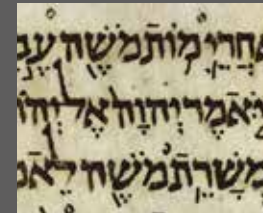 אַחֲרֵי מוֹת מֹשֶׁה עֶב
וַיֹּאמֶר יְהוָה אֶל יְהוֹ
מְשָׁרֵת מֹשֶׁה לֵאמ